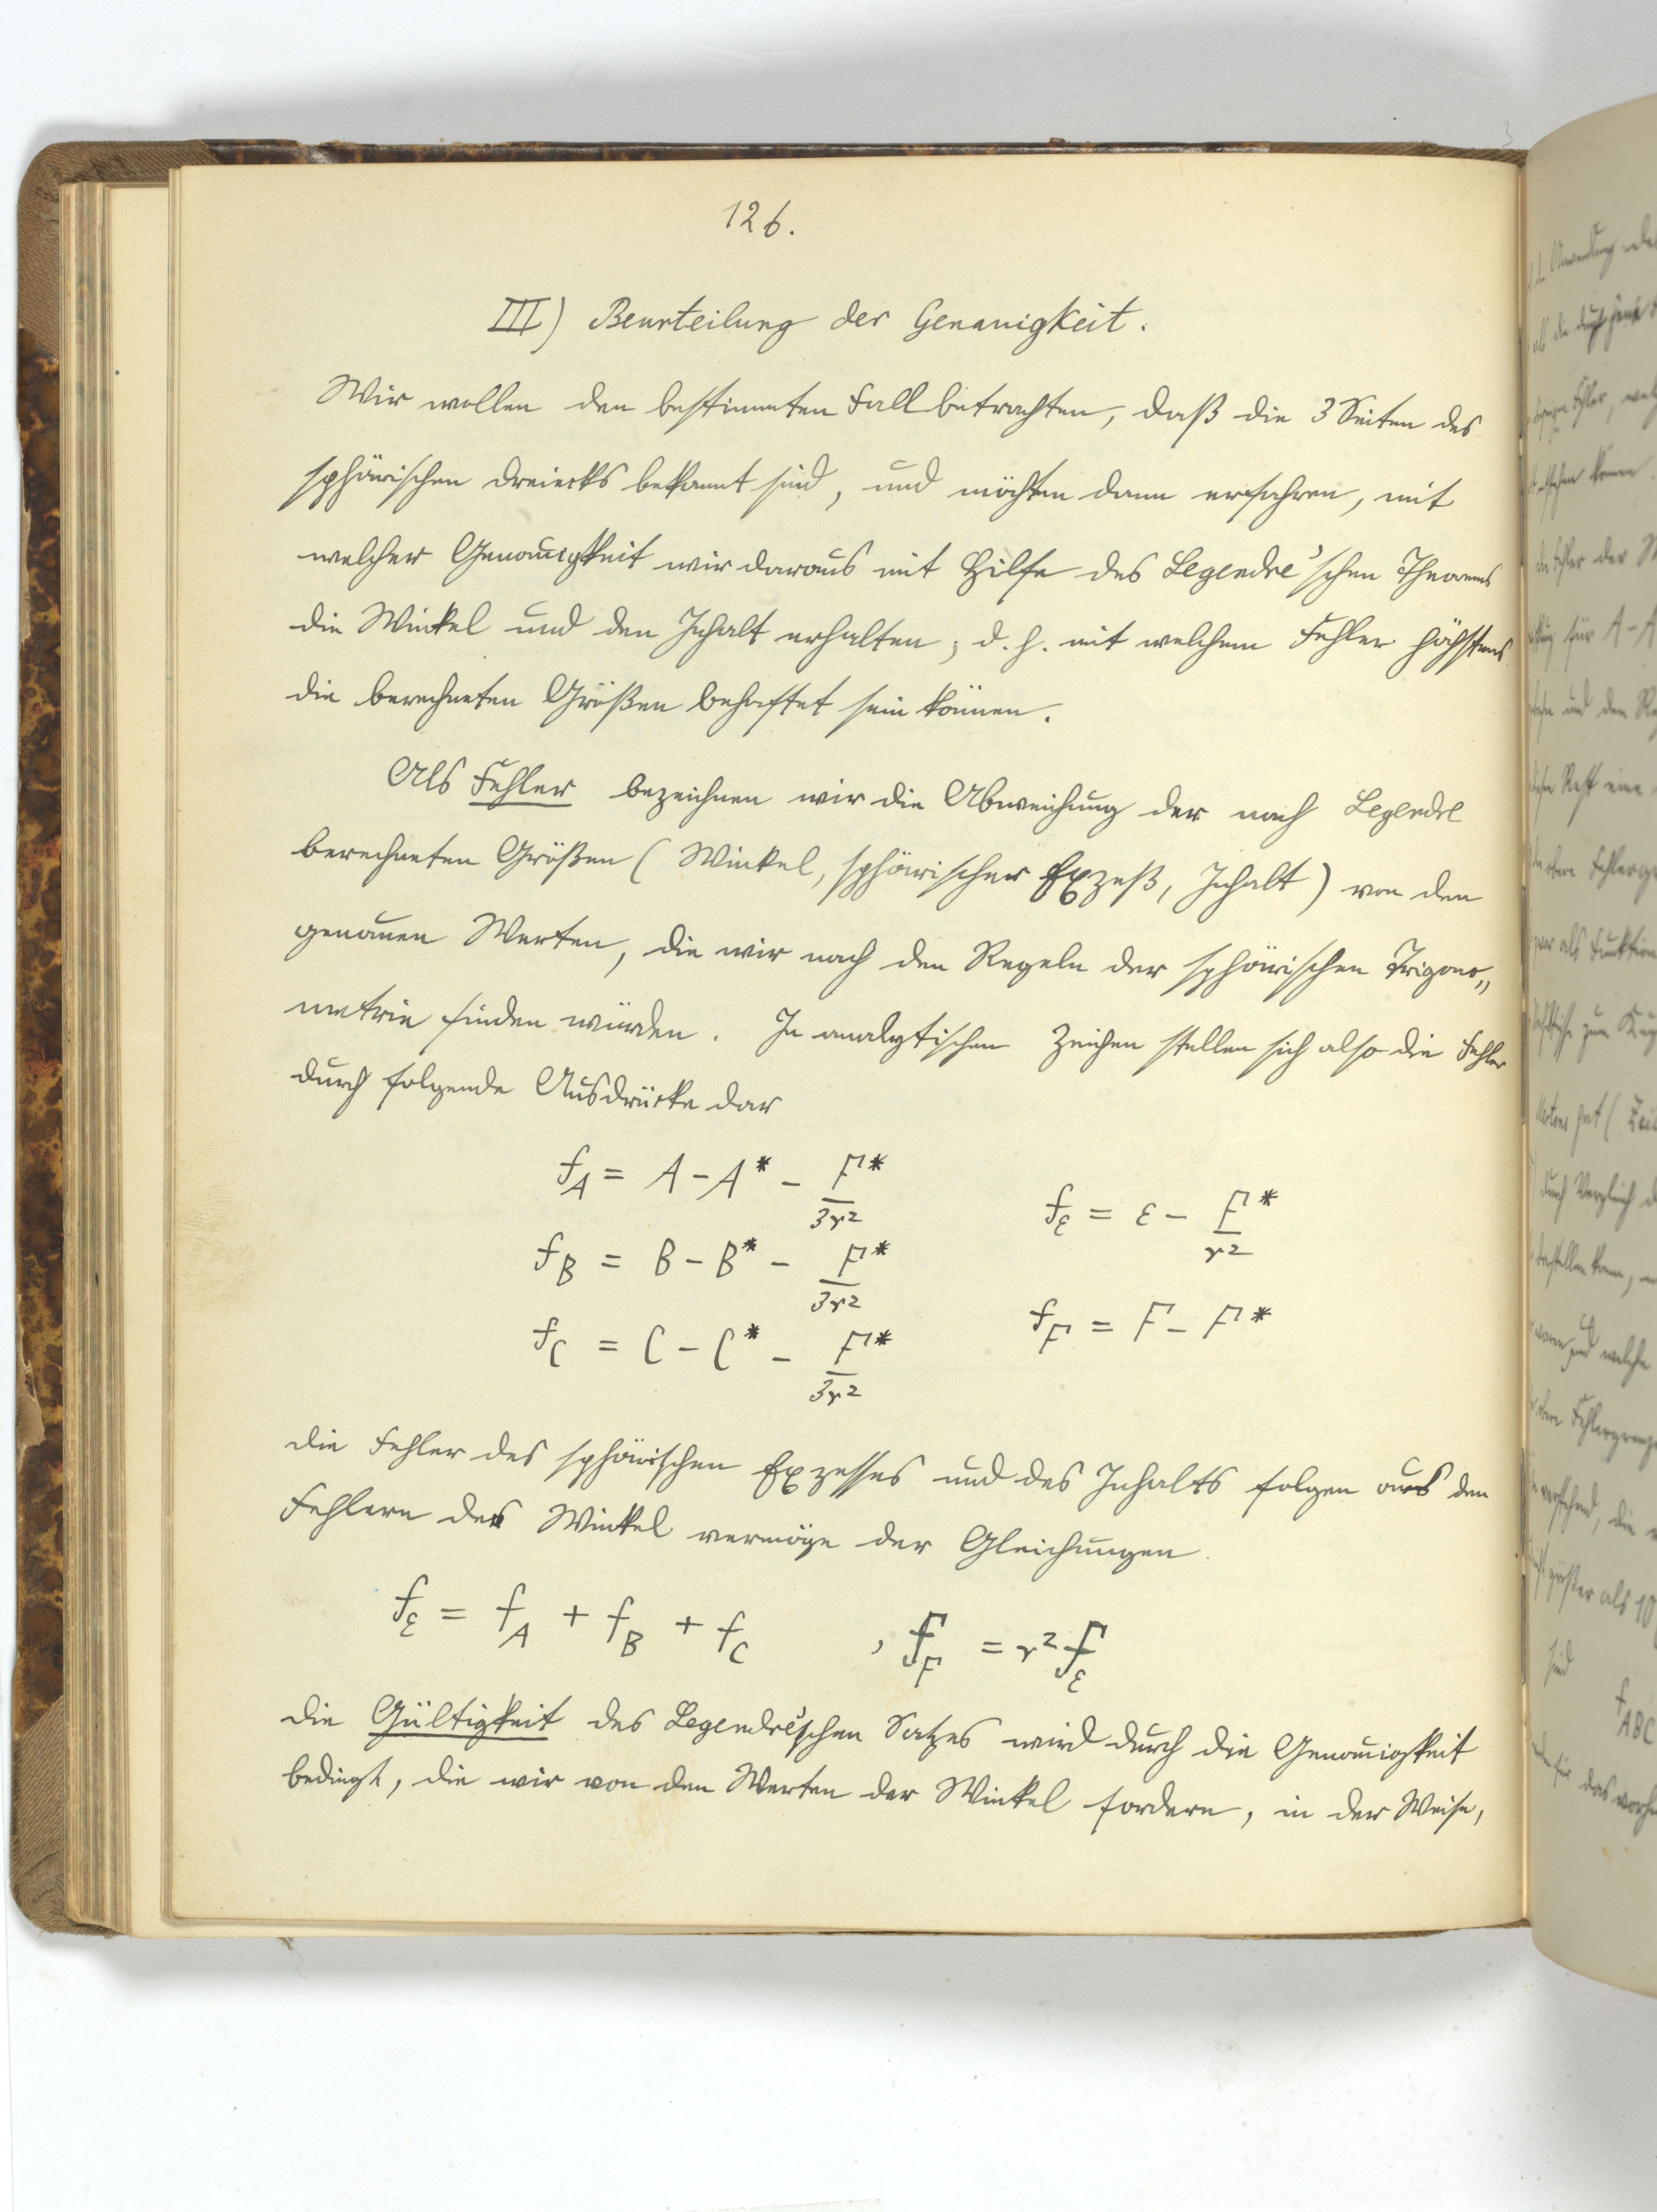 126.
III) Beurteilung der Genauigkeit.
Wir wollen den bestimmten Fall betrachten, daß die 3 Seiten des
sphärischen Dreiecks bekannt sind, und möchten dann erfahren, mit
welcher Genauigkeit wir daraus mit Hilfe des Legendre'schen Theorems
die Winkel und den Inhalt erhalten, d. h. mit welchem Fehler höchstens
die berechneten Größen behaftet sein können.
Als Fehler bezeichnen wir die Abweichung der nach Legendre
berechneten Größen (Winkel, sphärischer Exzeß, Inhalt) von den
genauen Werten, die wir nach den Regeln der sphärischen Trigono„
metrie finden würden. In analytischen Zeichen stellen sich also die Fehler
durch folgende Ausdrücke dar
f_A = A - A* - F*/3r²
f_ε = ε - F*/r²
f_B = B - B* - F*/3r²
f_F = F - F*
f_C = C - C* - F*/3r²
Die Fehler des sphärischen Exzesses und des Inhalts folgen aus den
Fehlern der Winkel vermöge der Gleichungen
f_ε = f_A + f_B + f_C , f_F = r² f_ε
Die Gültigkeit des Legendre'schen Satzes wird durch die Genauigkeit
bedingt, die wir von den Werten der Winkel fordern, in der Weise,